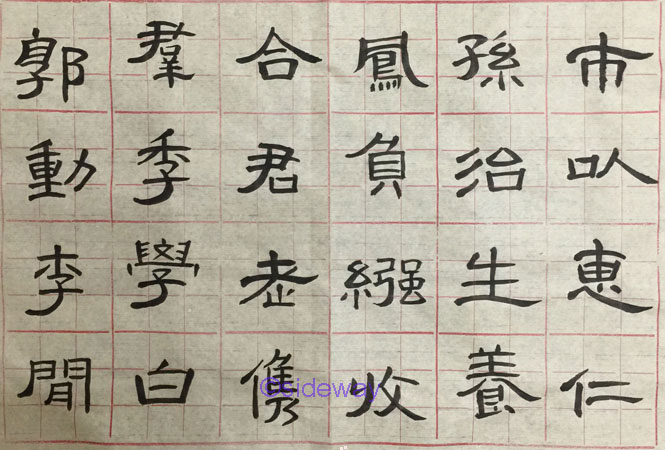 市以恵仁
孫治生養
鳳負繦收
合君老儁
羣季學白
郭動李閒
©sideway